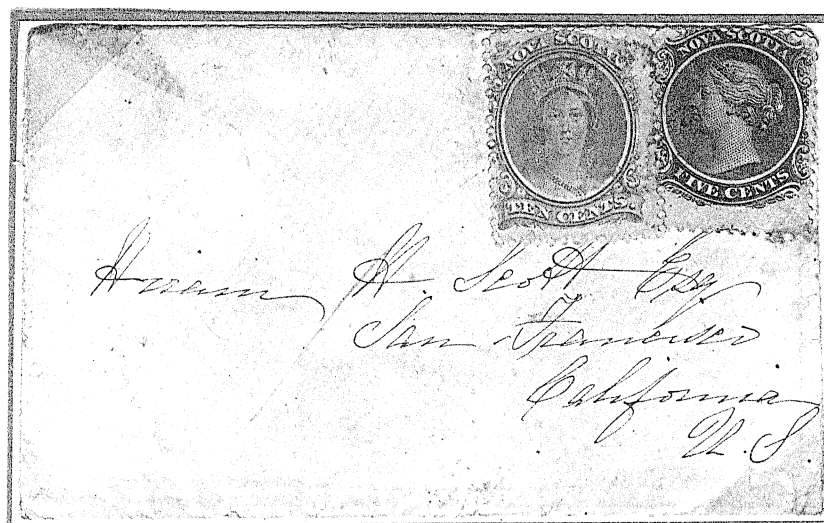 NOVA SCOTIA
TEN CENTS
NOVA SCOTIA
FIVE CENTS
Hiram H. Scott Esq
San Francisco
California
U. S.